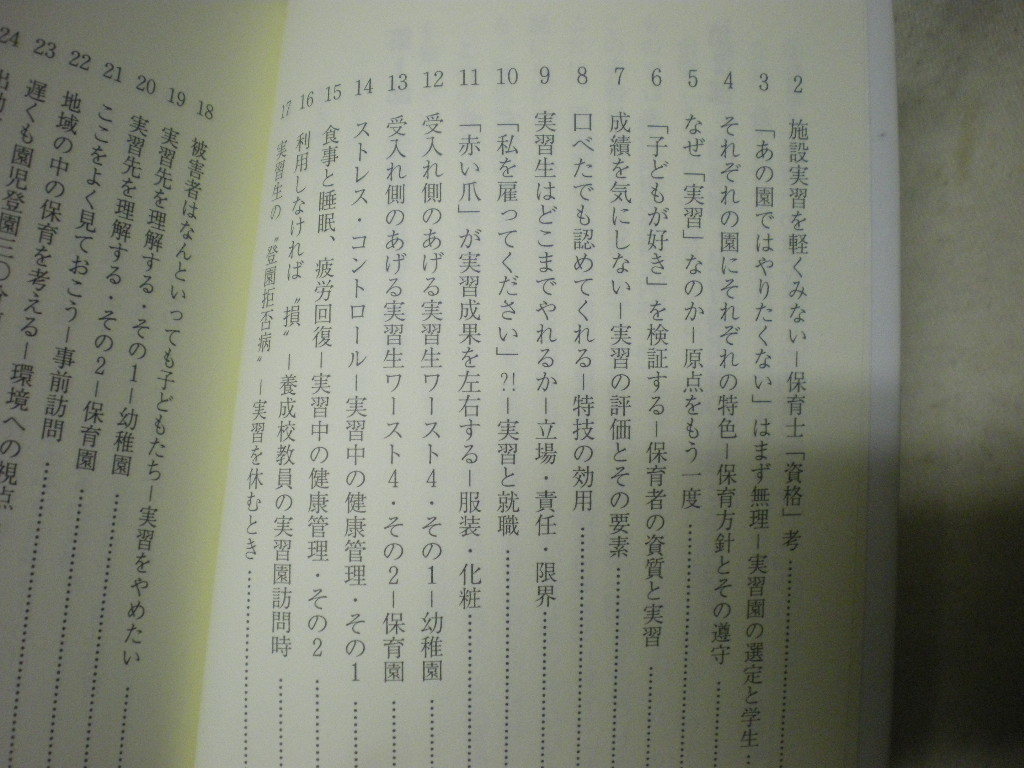 2 施設実習を軽くみない―保育士「資格」考
3 「あの園ではやりたくない」はまず無理―実習園の選定と学生
4 それぞれの園にそれぞれの特色―保育方針とその遵守
5 なぜ「実習」なのか―原点をもう一度
6 「子どもが好き」を検証する―保育者の資質と実習
7 成績を気にしない―実習の評価とその要素
8 口べたでも認めてくれる―特技の効用
9 実習生はどこまでやれるか―立場・責任・限界
10 「私を雇ってください」?!―実習と就職
11 「赤い爪」が実習成果を左右する―服装・化粧
12 受入れ側のあげる実習生ワースト4・その1―幼稚園
13 受入れ側のあげる実習生ワースト4・その2―保育園
14 ストレス・コントロール―実習中の健康管理・その1
15 食事と睡眠、疲労回復―実習中の健康管理・その2
16 利用しなければ〝損〟―養成校教員の実習園訪問時
17 実習生の〝登園拒否病〟―実習を休むとき
18 被害者はなんといっても子どもたち―実習をやめたい
19 実習先を理解する・その1―幼稚園
20 実習先を理解する・その2―保育園
21 ここをよく見ておこう―事前訪問
22 地域の中の保育を考える―環境への視点
23 遅くも園児登園三〇分
24